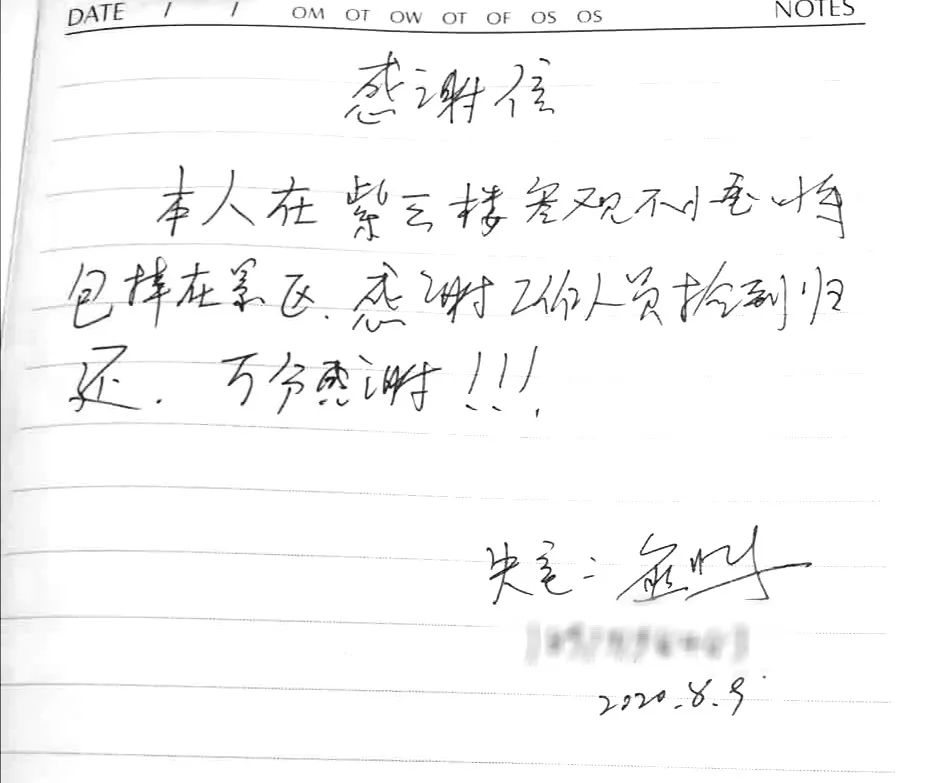 DATE / / OM OT OW OT OF OS OS NOTES
感谢信
本人在紫云楼参观不小心将
包掉在景区.感谢工作人员捡到归
还.万分感谢!!!
失主:
2020.8.9